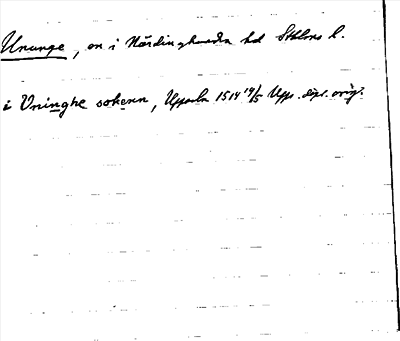 Ununge, sn i Närdinghundra hd Sthlms l.
i Vninghe sokenn, Uppsala 1514 19/5 Upps. dipl. orig.